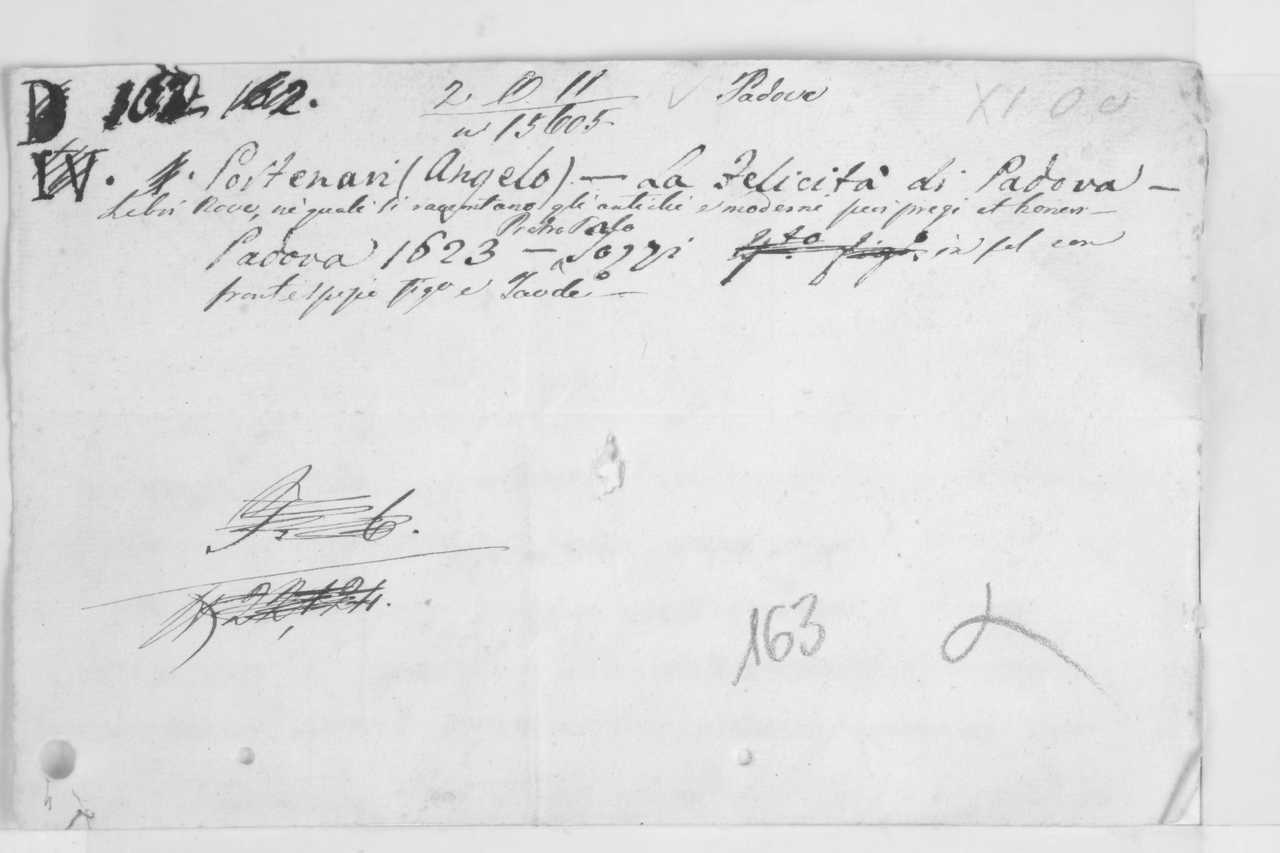 D 162.
2 10 11 Padova XI. O. O
n 15605
IV. Portenari (Angelo) — La Felicità di Padova —
Libri Nove, né quali si raccontano gli antichi e moderni suoi pregi et honori —
Pietro Paolo
Padova 1623 — Tozzi in fol con
frontespizio fig.e e Tavole —
163 L